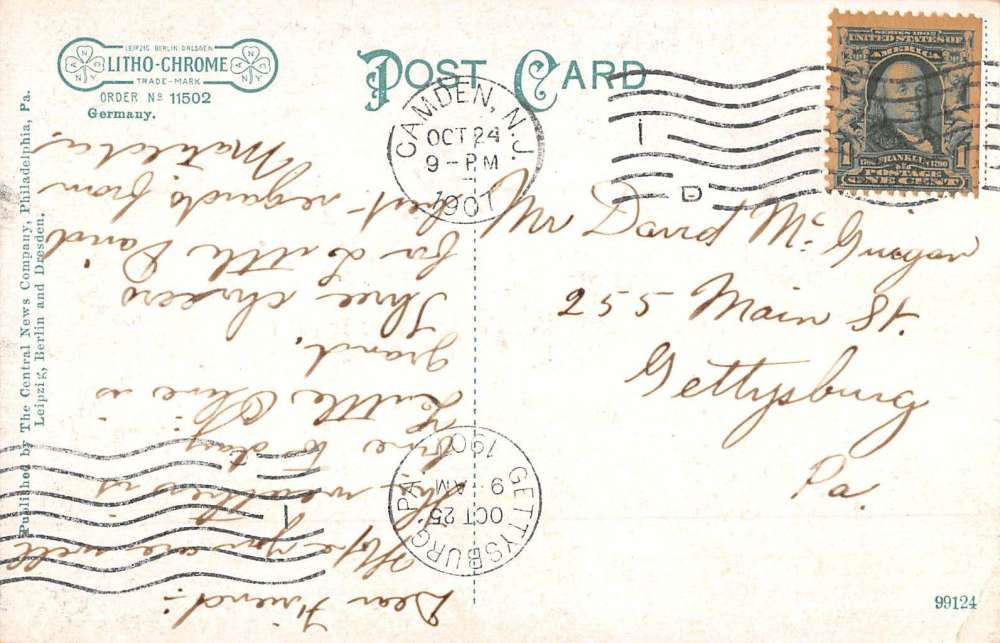 LEIPZIG BERLIN DRESDEN
LITHO-CHROME
TRADE-MARK
ORDER Nº 11502
Germany.
POST CARD
CAMDEN, N.J.
OCT 24
9-PM
1907
SERIES 1902
UNITED STATES OF
AMERICA
FRANKLIN
POSTAGE
1 ONE CENT 1
D
Mr David McGuigan
255 Main St.
Gettysburg
Pa.
Dear Friend:-
Hope you are well
The weather is
fine to day.
Little Olive is
grand.
Three cheers
for Little David
best regards from
Matilda
GETTYSBURG, PA.
OCT 25
9-AM
1907
1
Published by The Central News Company, Philadelphia, Pa.
Leipzig, Berlin and Dresden.
99124